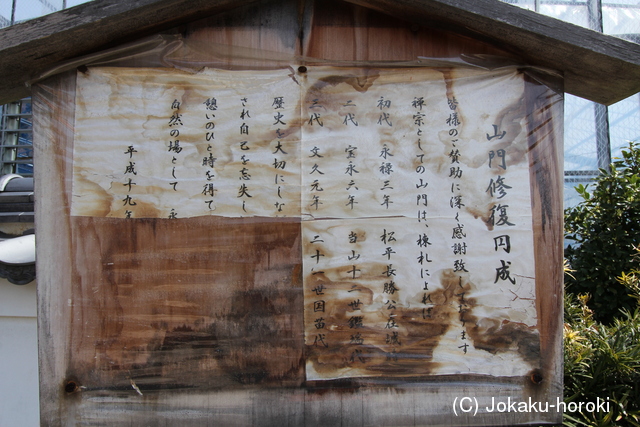 山門修復円成
皆様のご賛助に深く感謝致しております
禅宗としての山門は、棟札によれば
初代 永禄三年 松平長勝公在城
二代 宝永六年 当山十二世鑑
三代 文久元年 二十 世国苗代
歴史を大切にしな
され自己を忘失し
憩いのひと時を得て
自然の場として 永
平成十九年
(C) Jokaku-horoki